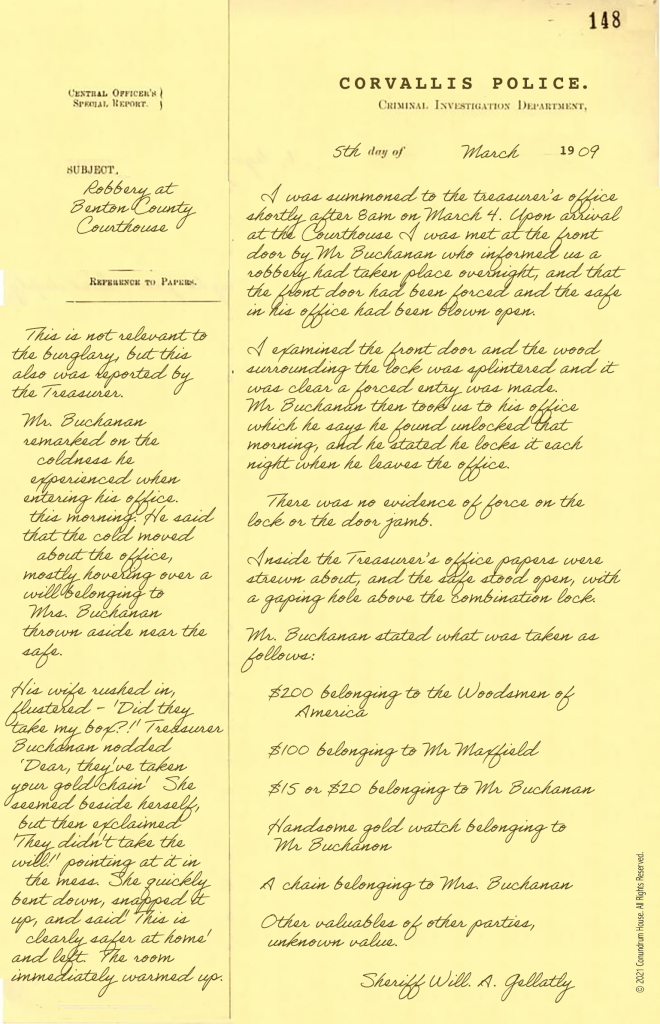 148
CENTRAL OFFICER'S
SPECIAL REPORT.
CORVALLIS POLICE.
CRIMINAL INVESTIGATION DEPARTMENT,
5th day of March 1909
SUBJECT,
Robbery at
Benton County
Courthouse
REFERENCE TO PAPERS.
This is not relevant to
the burglary, but this
also was reported by
the Treasurer.
Mr. Buchanan
remarked on the
coldness he
experienced when
entering his office.
this morning. He said
that the cold moved
about the office,
mostly hovering over a
will belonging to
Mrs. Buchanan
thrown aside near the
safe.
His wife rushed in,
flustered - 'Did they
take my box?!' Treasurer
Buchanan nodded
'Dear, they've taken
your gold chain' She
seemed beside herself,
but then exclaimed
'They didn't take the
will!' pointing at it in
the mess. She quickly
bent down, snapped it
up, and said' This is
clearly safer at home'
and left. The room
immediately warmed up.
I was summoned to the treasurer's office
shortly after 8am on March 4. Upon arrival
at the Courthouse I was met at the front
door by Mr Buchanan who informed us a
robbery had taken place overnight, and that
the front door had been forced and the safe
in his office had been blown open.
I examined the front door and the wood
surrounding the lock was splintered and it
was clear a forced entry was made.
Mr Buchanan then took us to his office
which he says he found unlocked that
morning, and he stated he locks it each
night when he leaves the office.
There was no evidence of force on the
lock or the door jamb.
Inside the Treasurer's office papers were
strewn about, and the safe stood open, with
a gaping hole above the combination lock.
Mr. Buchanan stated what was taken as
follows:
$200 belonging to the Woodsmen of
America
$100 belonging to Mr Maxfield
$15 or $20 belonging to Mr Buchanan
Handsome gold watch belonging to
Mr Buchanon
A chain belonging to Mrs. Buchanan
Other valuables of other parties,
unknown value.
Sheriff Will. A. Gellatly
© 2021 Conundrum House. All Rights Reserved.